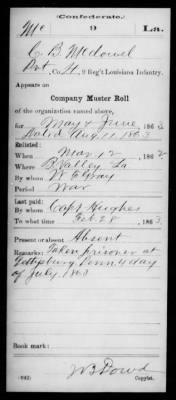 (Confederate.)
Mc 9 La.
C B McDowel
Pvt, Co. H, 9 Reg't Louisiana Infantry.
Appears on
Company Muster Roll
of the organization named above,
for May & June, 1863
dated Aug 11 1863
Enlisted:
When Mar 12, 1862
Where B Valley La
By whom W F Gray
Period War
Last paid:
By whom Capt Hughes
To what time Feb 28, 1863.
Present or absent Absent
Remarks: Taken prisoner at
Gettysburg Penn 4 day
of July 1863
(642) J B Dowd
Copyist.